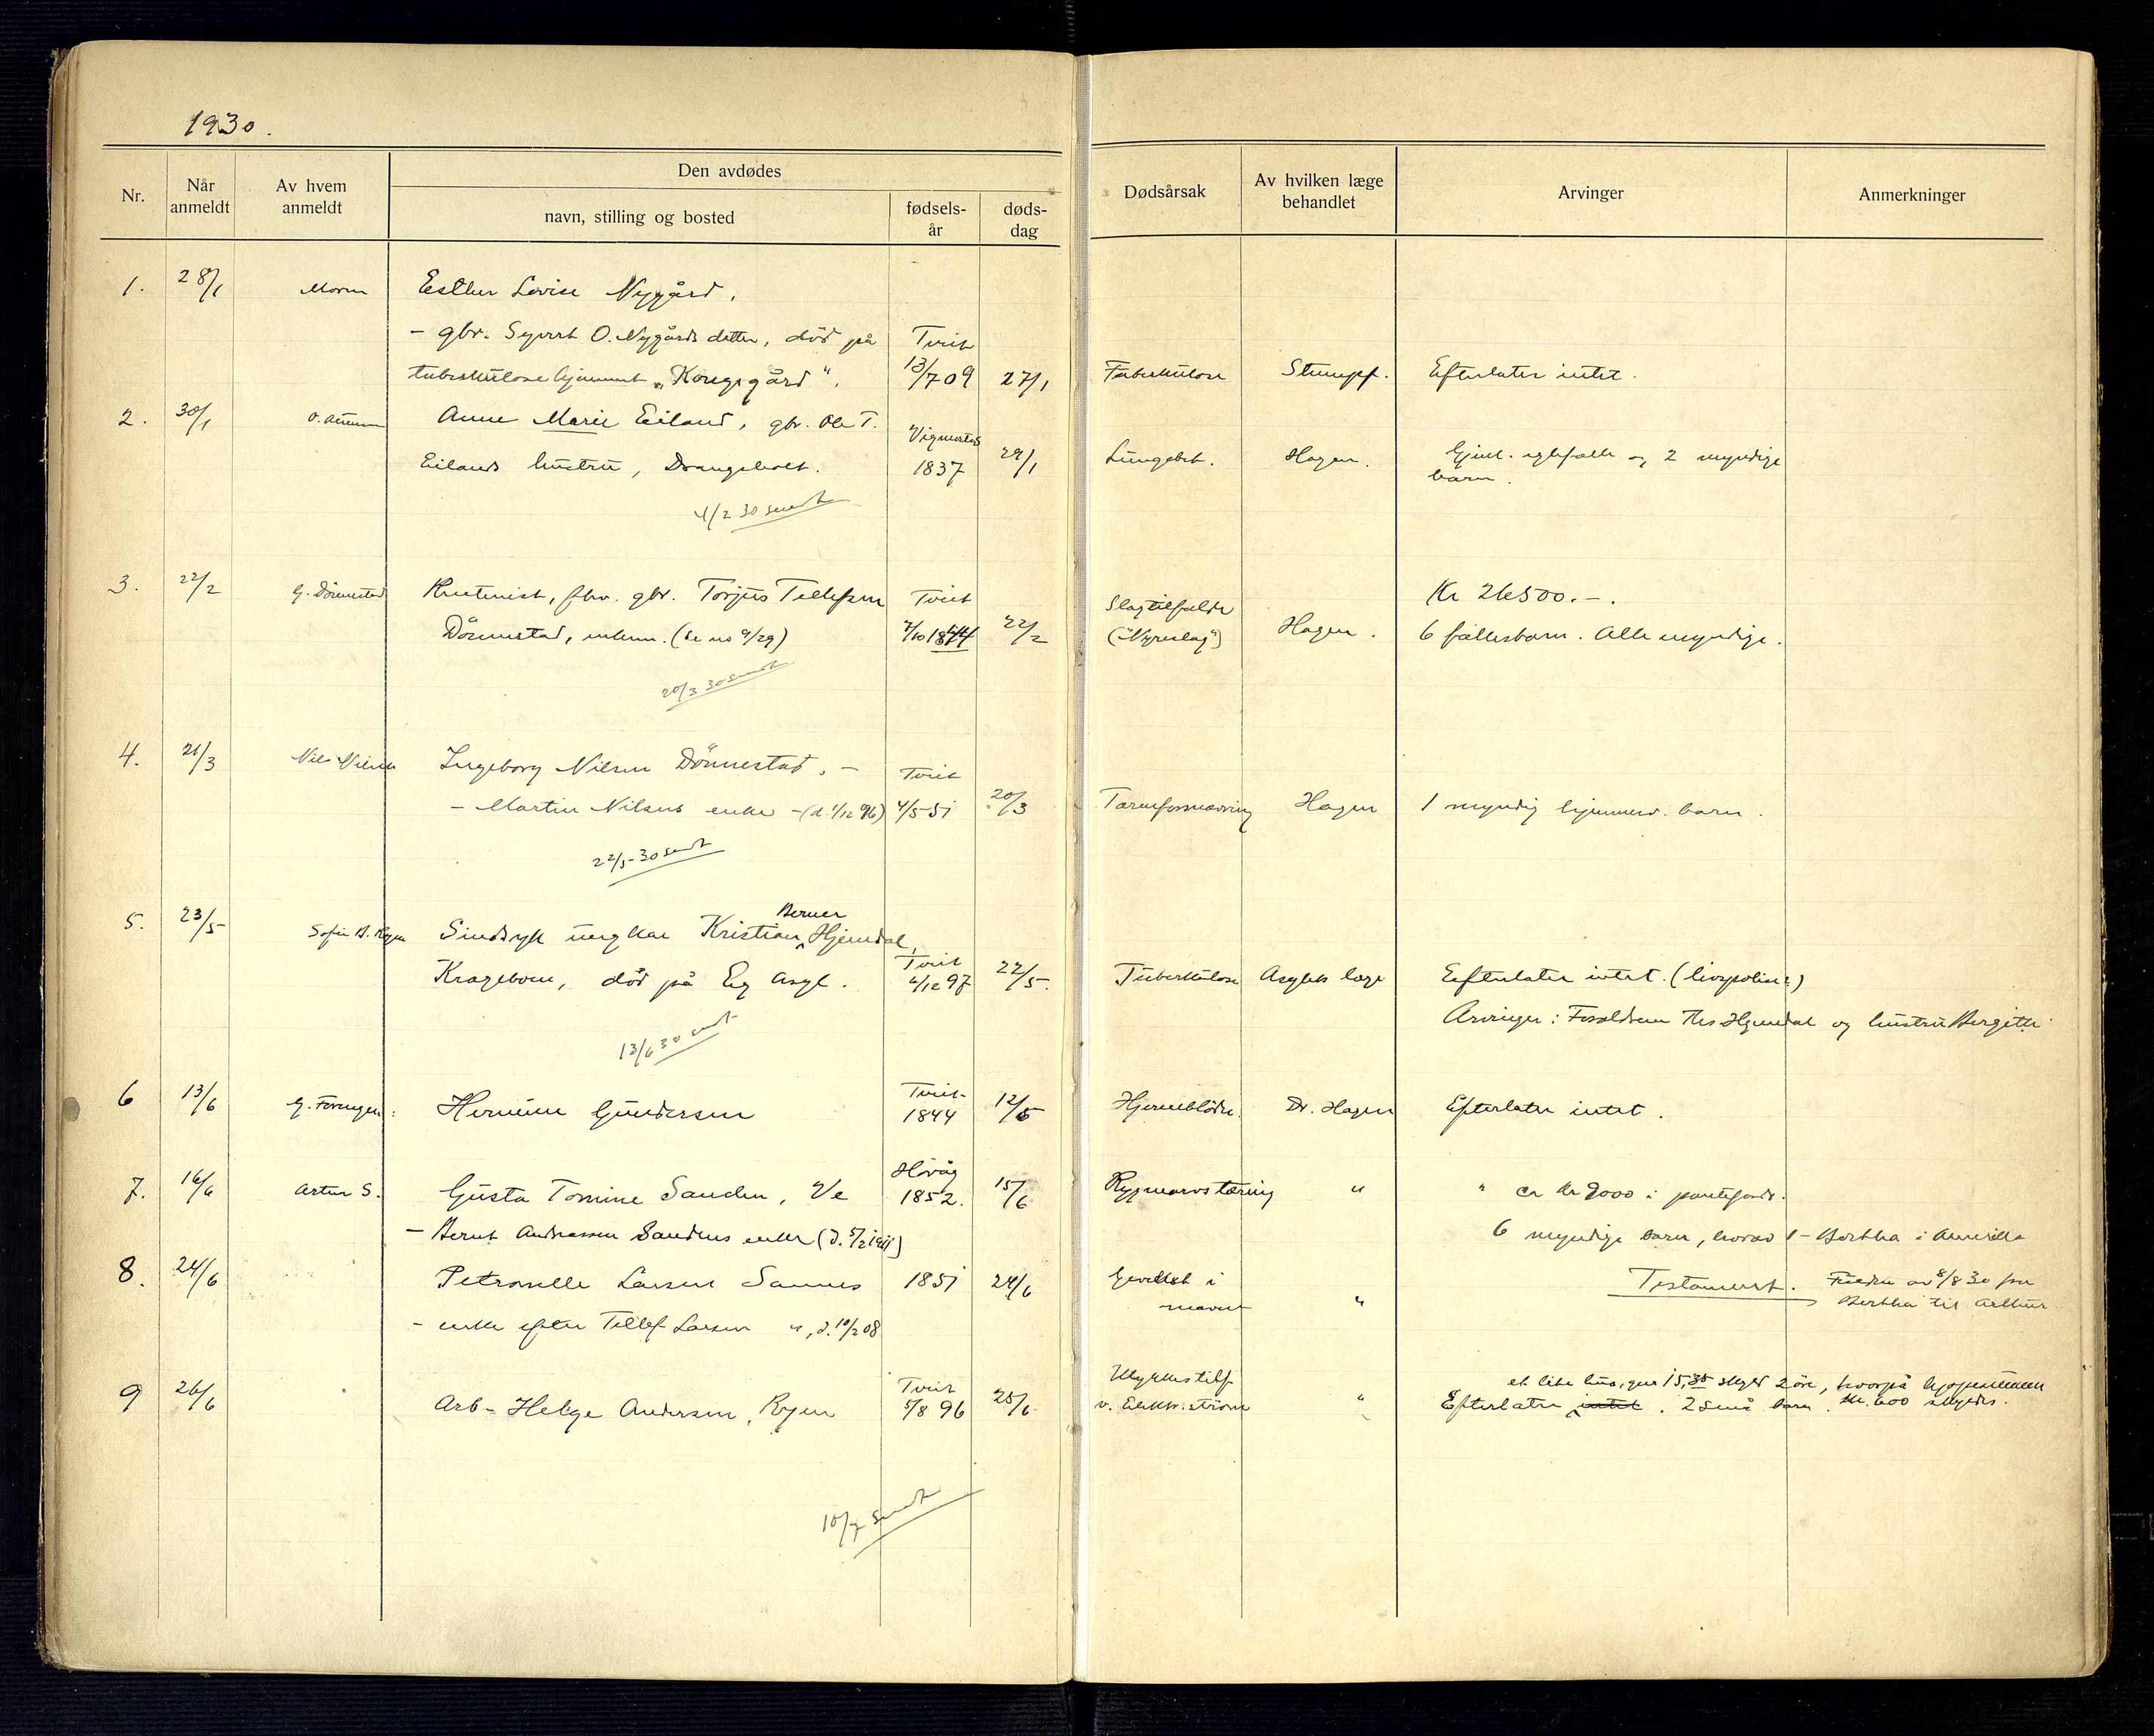 1930.
Nr.
Når anmeldt
Av hvem anmeldt
Den avdødes
navn, stilling og bosted
fødselsår
dødsdag
Dødsårsak
Av hvilken læge behandlet
Arvinger
Anmerkninger
1. 28/1 Moren Esther Lovise Nygård,
- gbr. Syvert O. Nygårds datter, död på Tveit
tuberkulosehjemmet „Kongsgård". 13/7 09 27/1 Tuberkulose Stumpf. Efterlater intet.
2. 30/1 Anne Marie Eiland, gbr. Ole T. Vigmostad
Eilands hustru, Drangsholt. 1837 29/1 Lungebet. Hagen. Gjenl. egtefælle og 2 myndige
barn.
4/2 30 sendt
3. 22/2 G. Dönnestad fhv. gbr. Torjus Tellefsen Tveit Kr 26500.-.
Dönnestad, enkem. (se no 9/29) 7/10 1844 22/2 Slagtilfælde Hagen. 6 fællesbarn. Alle myndige.
20/3 30 sendt
4. 21/3 Ingeborg Nilsen Dönnestad. - Tveit
- Martin Nilsens enke - (d. 1/12 96) 4/5 51 20/3 Hagen 1 myndig hjemmev. barn.
22/5-30 sendt
5. 23/5 Sofie B. Ryen Sindsyk ungkar Kristian Berner Hjemdal,
Kragebom, död på Eg Asyl. Tveit 4/12 97 22/5. Tuberkulose Asylets læge Efterlater intet. (livspolise?)
Arvinger: Forældrene Ths Hjemdal og hustru Bergitte
13/6 30 sendt
6 13/6 Gundersen Tveit 1844 12/6 Dr. Hagen Efterlater intet.
7. 16/6 Artur S. Gusta Tomine Sanden, Ve Hövåg 1852. 15/6 Rygmarvstæring " " ca kr 9000 i
- Bernt Andreassen Sandens enke (d. 5/2 1911) 6 myndige barn, hvorav 1 - Bertha i Amerika
8. 24/6 Petronelle Larsen Sannes 1851 24/6 i maven " Testament. av 8/8 30 fra
Bertha til Arthur
- enke efter Tellef Larsen ", d. 10/2 08
9 26/6 Arb- Helge Andersen, Ryen Tveit 5/8 96 25/6 Ulykkestilf
v. Elektr. ström " et lite hus, gnr 15, skyld 2 öre, hvorpå
Efterlater intet. 2 små barn. kr. 600 skyldes.
10/7 sendt